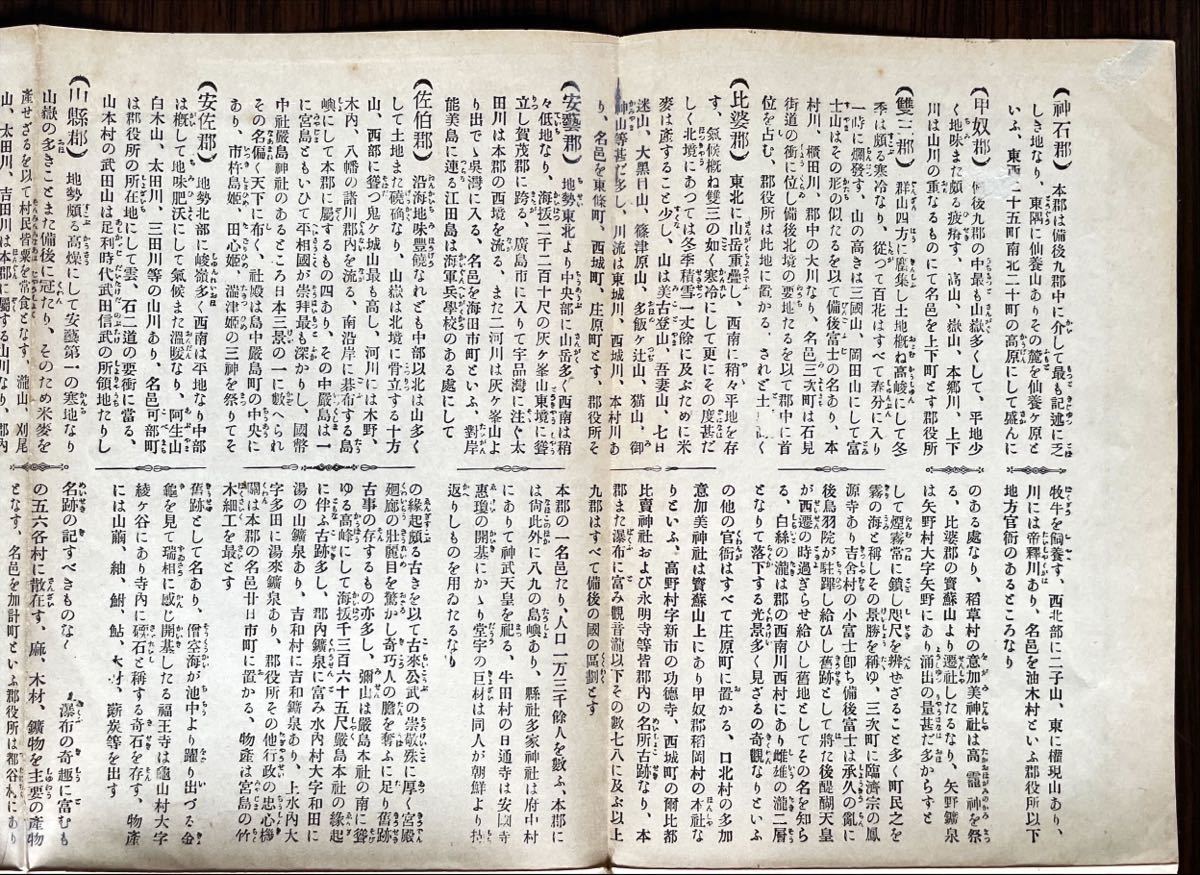 (神石郡) 本郡は備後九郡中に介して最も記述に乏
しき地なり、東隅に仙養山ありその麓を仙養ヶ原と
いふ、東西二十五町南北二十町の高原にして盛んに
牧牛を飼養す、西北部に二子山、東に權現山あり、
川には帝釋川あり、名邑を油木村といふ郡役所以下
地方官衙のあるところなり
(甲奴郡) 後九郡の中最も山嶽多くして、平地少
く地味また頗る疲瘠す、高山、嶽山、本郷川、上下
川は山川の重なるものにて名邑を上下町とす郡役所
のある處なり、稻草村の意加美神社は高龗神を祭
る、比婆郡の寶蘇山より遷社したるなり、矢野鑛泉
は矢野村大字矢野にあり涌出の量甚だ多からずと
(雙三郡) 群山四方に麕集し土地概ね高峻にして冬
季は頗る寒冷なり、從つて百花はすべて春分に入り
一時に爛發す、山の高きは三國山、岡田山にして富
士山はその形の似たるを以て備後富士の名あり、本
村川、櫃田川、郡中の大川なり、名邑三次町は石見
街道の衝に位し備後北境の要地たるを以て郡中に首
位を占む、郡役所は此地に置かる、されど土く
して煙霧常に鎖し咫尺を辨ぜざること多く町民之を
霧の海と稱しその景勝を稱ゆ、三次町に臨濟宗の鳳
源寺あり吉舍村の小富士卽ち備後富士は承久の亂に
後鳥羽院が駐蹕し給ひし舊跡として將た後醍醐天皇
が西遷の時過ぎらせ給ひし舊地としてその名を知ら
る、白絲の瀧は郡の西南川西村にあり雌雄の瀧二層
となりて落下する光景多く見ざるの奇觀なりといふ
(比婆郡) 東北に山岳重疊し、西南に稍々平地を存
す、氣候概ね雙三の如く寒冷にして更にその度甚だ
しく北境にあつては冬季積雪一丈餘に及ぶために米
麥は產すること少し、山は美古登山、吾妻山、七日
迷山、大黑目山、篠津原山、多飯ヶ辻山、猫山、御
神山等甚だ多し、川流は東城川、西城川、本村川あ
り、名邑を東條町、西城町、庄原町とす、郡役所そ
の他の官衙はすべて庄原町に置かる、口北村の多加
意加美神社は寶蘇山上にあり甲奴郡稻岡村の本社な
りといふ、高野村字新市の功德寺、西城町の爾比都
比賣神社および永明寺等皆郡內の名所古跡なり、本
郡また瀑布に富み觀音瀧以下その數七八に及ぶ以上
九郡はすべて備後の國の區劃とす
(安藝郡) 地勢東北より中央部に山岳多く西南は稍
々低地なり、海拔二千二百十尺の灰ヶ峯山東境に聳
立し賀茂郡に跨る、廣島市に入りて宇品灣に注ぐ太
田川は本郡の西境を流る、また二河川は灰ヶ峯山よ
り出でゝ吳灣に入る、名邑を海田市町といふ、對岸
能美島に連る江田島は海軍兵學校のある處にして
本郡の一名邑たり、人口一万三千餘人を數ふ、本郡に
は尙此外に八九の島嶼あり、縣社多家神社は府中村
にありて神武天皇を祀る、牛田村の日通寺は安國寺
惠瓊の開基にかゝり堂宇の巨材は同人が朝鮮より持
返りしものを用ゐたるなり
(佐伯郡) 沿海地味豐饒なれども中部以北は山多く
して土地また磽确なり、山嶽は北境に骨立する十方
山、西部に聳つ鬼ヶ城山最も高し、河川には木野、
木內、八幡の諸川郡內を流る、南沿岸に碁布する島
嶼にして本郡に屬するもの四あり、その中嚴島は一
に宮島ともいひて平相國が崇拜最も深かりし、國幣
中社嚴島神社のあるところ日本三景の一に數へられ
その名徧く天下に布く、社殿は島中嚴島町の中央に
あり、市杵島姬、田心姬、湍津姬の三神を祭りてそ
の緣起頗る古きを以て古來公武の崇敬殊に厚く宮殿
廻廊の壯麗目を驚かし奇巧人の膽を奪ふに足り舊跡
古事の存するもの亦多し、彌山は嚴島本社の南に聳
ゆる高峰にして海拔千三百六十五尺嚴島本社の緣起
に伴ふ古跡多し、郡內鑛泉に富み水內村大字和田に
湯の山鑛泉あり、吉和村に吉和鑛泉あり、上水內大
字多田に湯來鑛泉あり、郡役所その他行政の忠心機
關は本郡の名邑廿日市町に置かる、物產は宮島の竹
木細工を最とす
(安佐郡) 地勢北部に峻嶺多く西南は平地なり中部
は槪して地味肥沃にして氣候また溫暖なり、阿生山
白木山、太田川、三田川等の山川あり、名邑可部町
は郡役所の所在地にして雲、石二道の要衝に當る、
山本村の武田山は足利時代武田信武の所領地たりし
舊跡として名あり、僧空海が池中より躍り出づる金
龜を見て瑞相に感じ開基したる福王寺は龜山村大字
綾ヶ谷にあり寺內に礴石と稱する奇石を存す、物產
には山繭、紬、鮒、鮎、木材、斷炭等を出す
(山縣郡) 地勢頗る高燥にして安藝第一の寒地なり
山嶽の多きことまた備後に冠たり、そのため米麥を
產せざるを以て村民皆粟を常食となす、瀧山、刈尾
山、太田川、吉田川は本郡に屬する山川なり、郡內
名跡の記すべきものな、瀑布の奇趣に富むも
の五六各村に散在す、麻、木材、鑛物を主要の產物
となす、名邑を加計町といふ郡役所は都谷村にあり